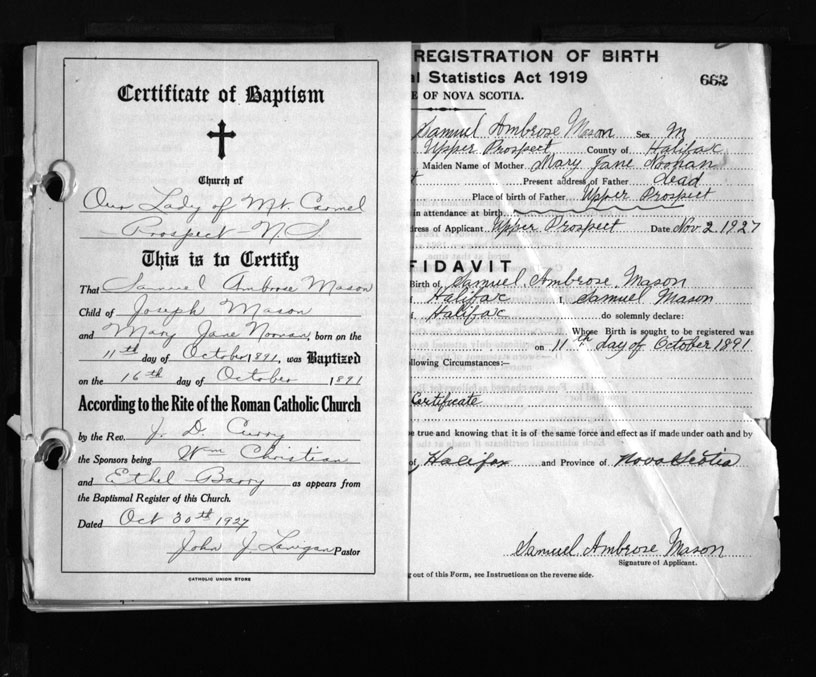 Certificate of Baptism
Church of
Our Lady of Mt. Carmel
Prospect - N S
This is to Certify
That Samuel Ambrose Mason
Child of Joseph Mason
and Mary Jane Noonan, born on the
11th day of October 1891, was Baptized
on the 16th day of October 1891
According to the Rite of the Roman Catholic Church
by the Rev. J. D. Curry
the Sponsors being Wm Christian
and Ethel Barry as appears from
the Baptismal Register of this Church.
Dated Oct 30th 1927
John J. Lanigan Pastor
CATHOLIC UNION STORE
REGISTRATION OF BIRTH
l Statistics Act 1919
662
E OF NOVA SCOTIA.
Samuel Ambrose Mason Sex M
Upper Prospect County of Halifax
Maiden Name of Mother Mary Jane Noonan
t Present address of Father dead
Place of birth of Father Upper Prospect
in attendance at birth
ress of Applicant Upper Prospect Date Nov. 2 1927
FIDAVIT
Birth of Samuel Ambrose Mason
Halifax I Samuel Mason
f Halifax do solemnly declare:
Whose Birth is sought to be registered was
on 11th day of October 1891
llowing Circumstances:—
Certificate
e true and knowing that it is of the same force and effect as if made under oath and by
of Halifax and Province of Nova Scotia
Samuel Ambrose Mason
Signature of Applicant.
g out of this Form, see Instructions on the reverse side.